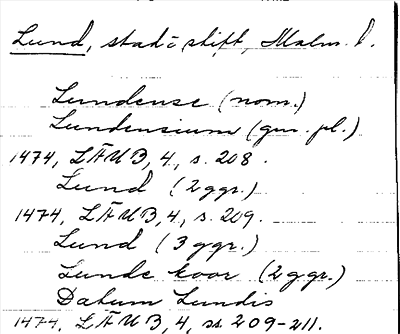 Lund, stad o stift, Malm. l.
Lundense (nom.)
Lundensium (gen. pl.)
1474, LÄUB, 4, s. 208.
Lund (2 ggr.)
1474, LÄUB, 4, s. 209.
Lund (3 ggr.)
Lunde koor (2 ggr.)
Datum Lundis
1474, LÄUB, 4, ss. 209-211.